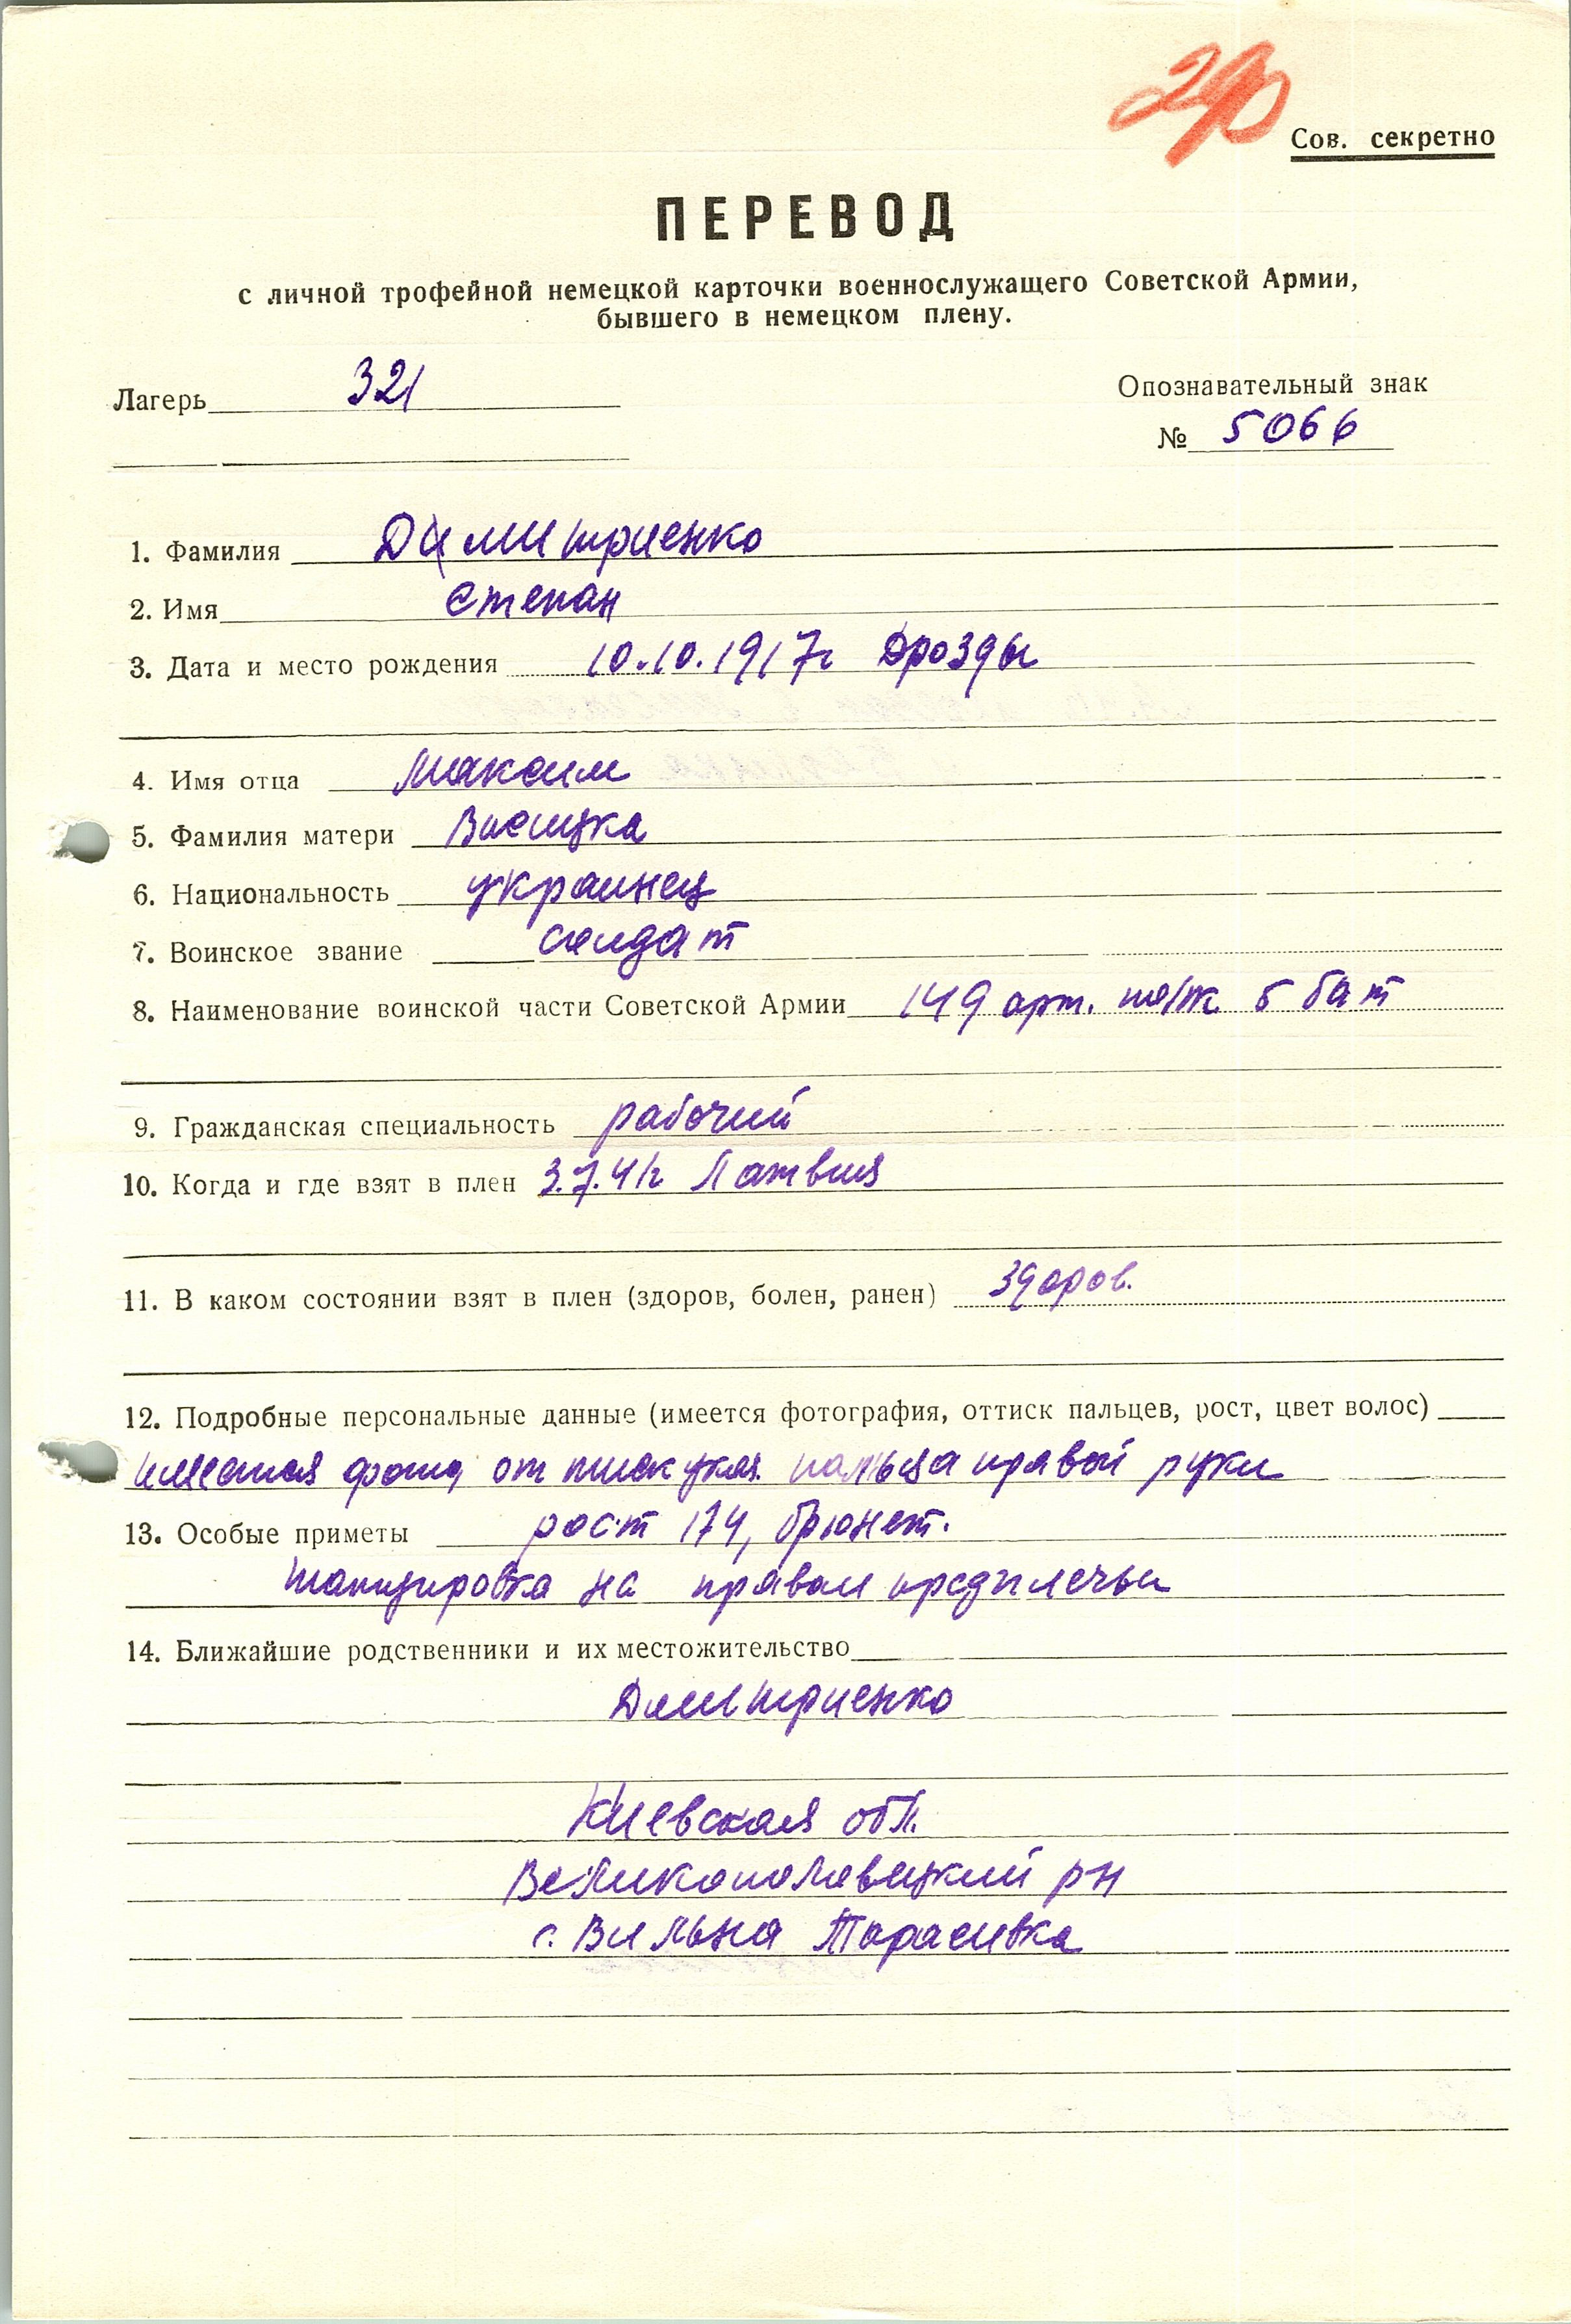 Сов. секретно
ПЕРЕВОД
с личной трофейной немецкой карточки военнослужащего Советской Армии,
бывшего в немецком плену.
Лагерь 321
Опознавательный знак
№ 5066
1. Фамилия Димитриенко
2. Имя Степан
3. Дата и место рождения 10.10.1917г Дрозды
4. Имя отца Максим
5. Фамилия матери
6. Национальность украинец
7. Воинское звание солдат
8. Наименование воинской части Советской Армии 149 арт. полк 5 бат
9. Гражданская специальность рабочий
10. Когда и где взят в плен 3.7.41г Латвия
11. В каком состоянии взят в плен (здоров, болен, ранен) здоров.
12. Подробные персональные данные (имеется фотография, оттиск пальцев, рост, цвет волос)
имеется фото, оттиск указ. пальца правой руки
13. Особые приметы рост 174, брюнет.
татуировка на правом предплечьи
14. Ближайшие родственники и их местожительство
Димитриенко
Киевская обл.
Великополовецкий рн
с. Вильна Тарасивка